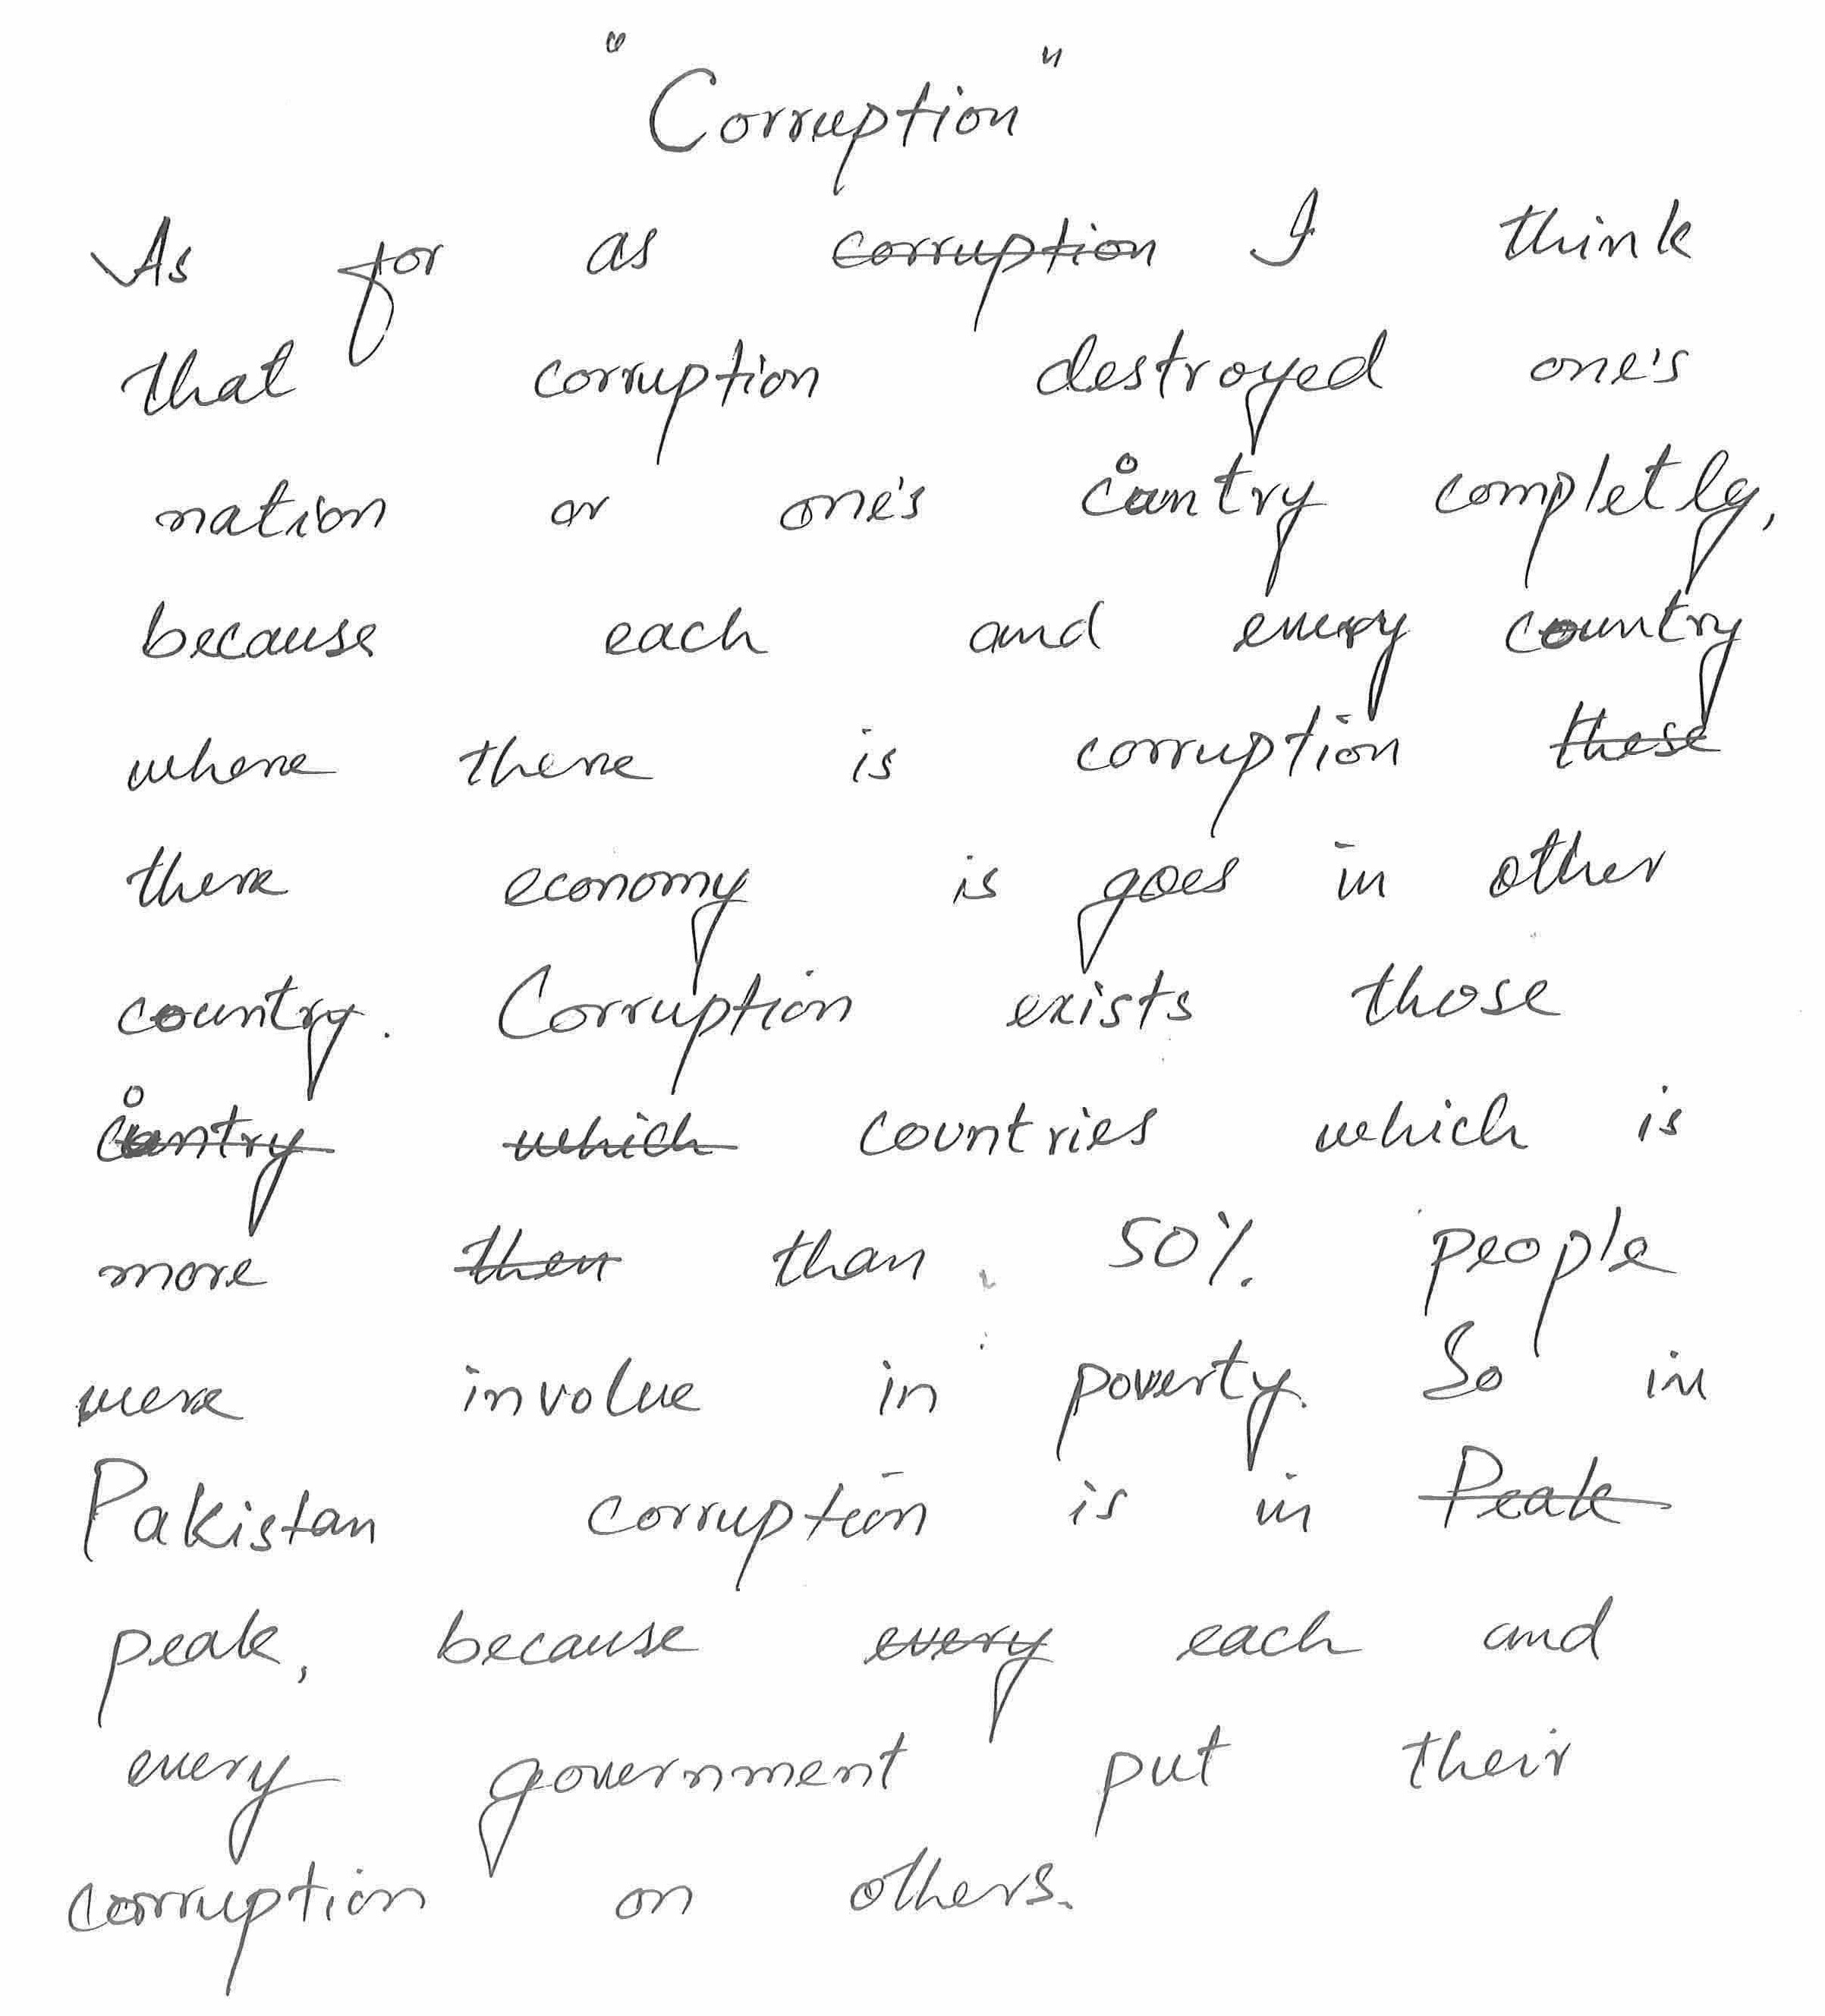 "Corruption"
As for as ~~corruption~~ I think
that corruption destroyed one's
nation or one's country completly,
because each and every country
where there is corruption ~~these~~
there economy is goes in other
country. Corruption exists those
~~country~~ ~~which~~ countries which is
more ~~then~~ than 50% people
were involve in poverty. So in
Pakistan corruption is in ~~Peak~~
peak, because ~~every~~ each and
every government put their
corruption on others.